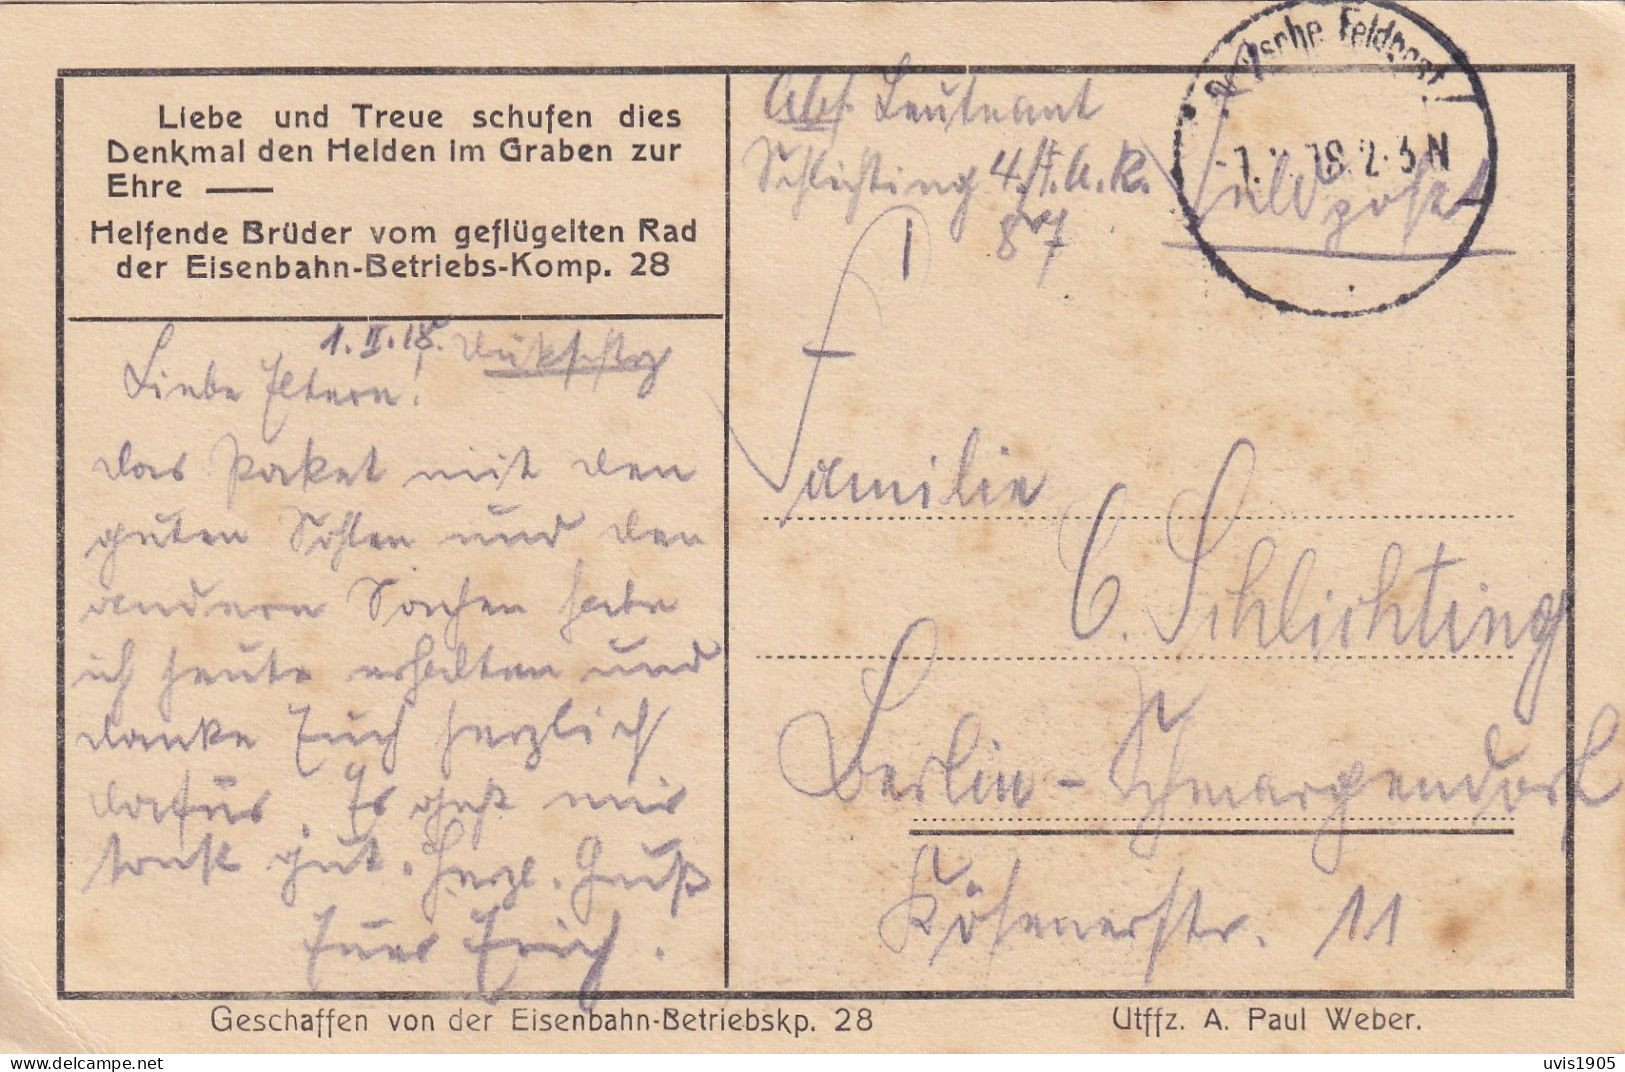 Liebe und Treue schufen dies
Denkmal den Helden im Graben zur
Ehre —
Helfende Brüder vom geflügelten Rad
der Eisenbahn-Betriebs-Komp. 28
1. II. 18.
Liebe Eltern!
das Paket mit den
guten Sohlen und den
andern Sachen habe
ich heute erhalten und
danke Euch herzlich
dafür. Es geht mir
sonst gut. Herzl. Gruß
Euer Erich.
Abs. Leutnant
Schlichting 4./F.A.R.
87
Deutsche Feldpost
2-3 N
Feld
post
Familie
C. Schlichting
Berlin-Schmargendorf
Kösenerstr. 11
Geschaffen von der Eisenbahn-Betriebskp. 28
Utffz. A. Paul Weber.
uvis1905